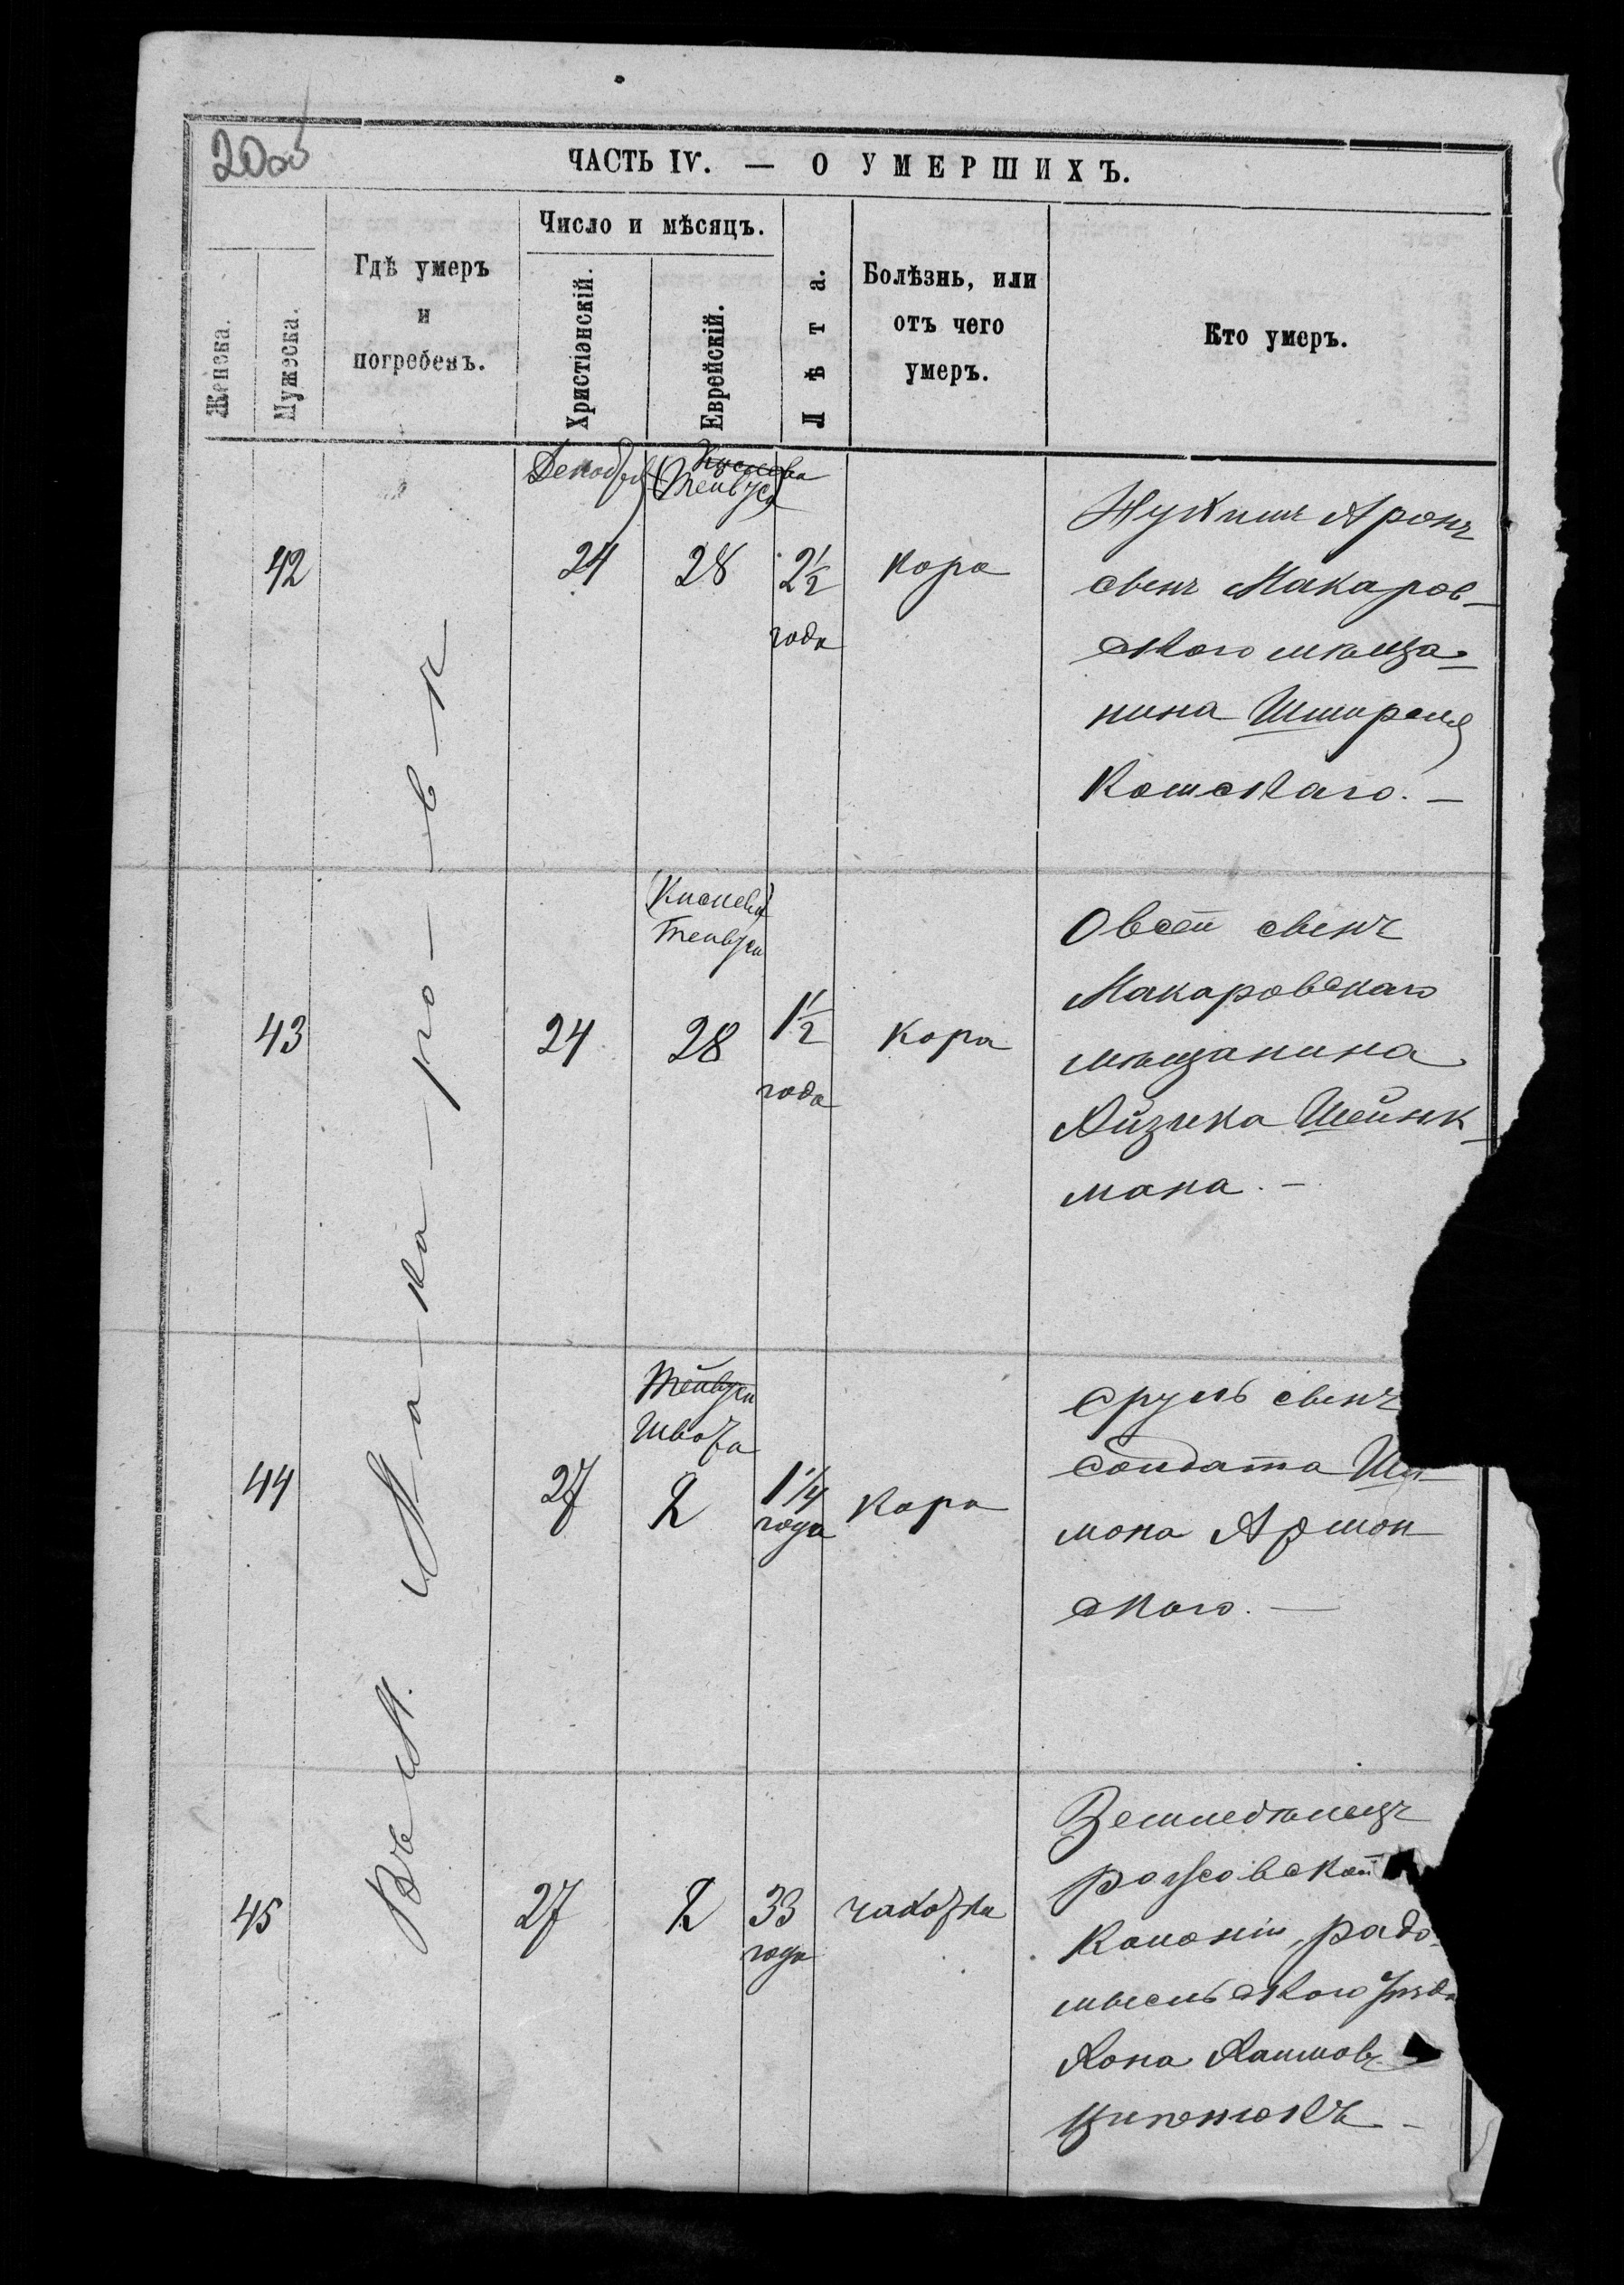 200
ЧАСТЬ IV. — О УМЕРШИХЪ.
Женска.
Мужеска.
Гдѣ умеръ
и
погребенъ.
Число и мѣсяцъ.
Христіанскій.
Еврейскій.
Лѣта.
Болѣзнь, или
отъ чего
умеръ.
Кто умеръ.
Въ м. Ма-ка-ро-в-ѣ
Декабря
Кислева
Тейвуса
42
24
28
2½
года
кора
Аронъ
сынъ Макаров-
скаго мѣща-
нина Шмиреля
Котскаго. —
Кислева
Тейвуса
43
24
28
1½
года
кора
Овсей сынъ
Макаровскаго
мѣщанина
Айзика Шейнк-
мана. —
Тейвуса
Швота
44
27
2
1¼
года
кора
Сруль сынъ
Солдата Ши-
мона
скаго. —
45
27
2
33
года
чахотка
Земледѣлецъ
колоніи, радо-
мысльскаго уѣзда